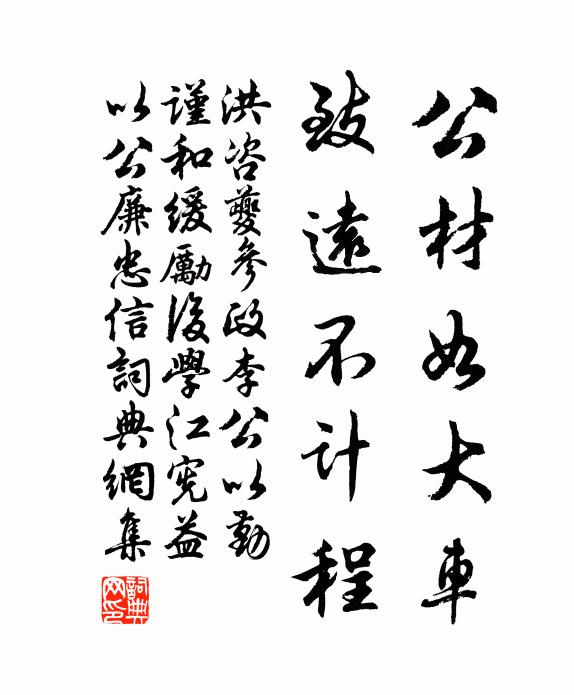 公材如大車
致遠不計程
洪咨夔參政李公以勤
謹和緩勵後學江宪益
以公廉忠信詞典網集
詞典網印